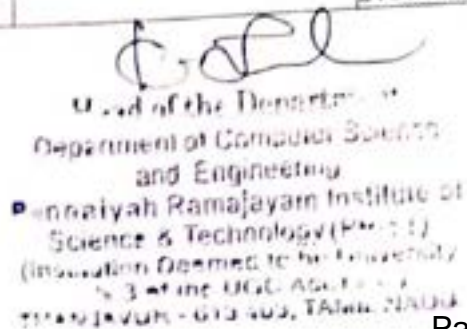 Head of the Department
Department of Computer Science
and Engineering
Ponnaiyah Ramajayam Institute of
Science & Technology (PRIST)
(Institution Deemed to be University
3 of the UGC Act
THANJAVUR - 613 403, TAMIL NADU
Pa